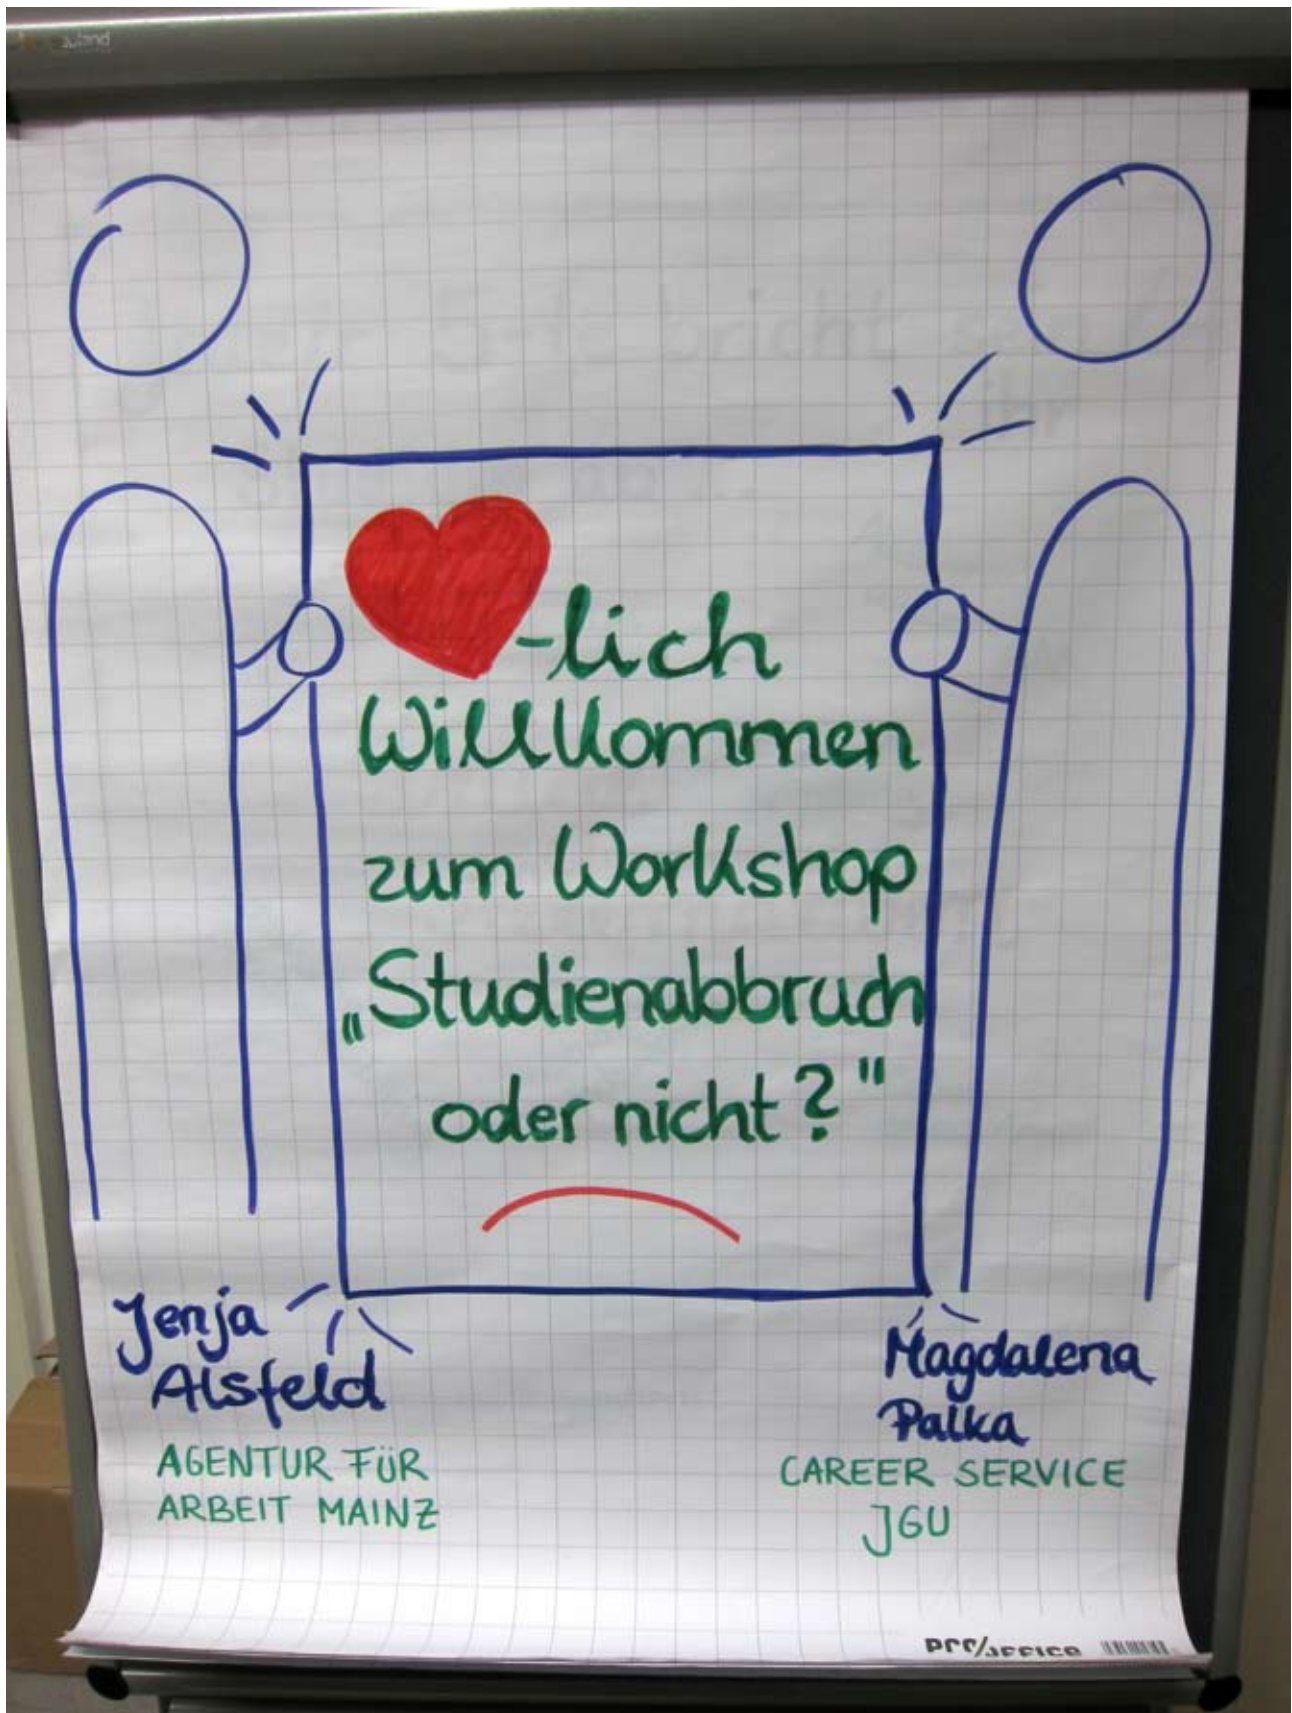 -lich
Willkommen
zum Workshop
„Studienabbruch
oder nicht?"
Jenja
Alsfeld
AGENTUR FÜR
ARBEIT MAINZ
Magdalena
Palka
CAREER SERVICE
JGU